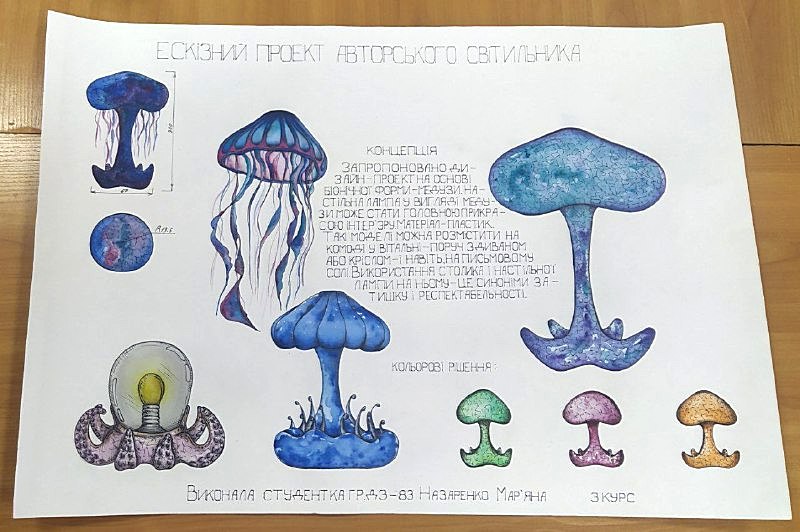 ЕСКІЗНИЙ ПРОЕКТ АВТОРСЬКОГО СВІТИЛЬНИКА
КОНЦЕПЦІЯ
ЗАПРОПОНОВАНО ДИ-
ЗАЙН-ПРОЕКТ НА ОСНОВІ
БІОНІЧНОЇ ФОРМИ-МЕДУЗИ. НА-
СТІЛЬНА ЛАМПА У ВИГЛЯДІ МЕДУ-
ЗИ МОЖЕ СТАТИ ГОЛОВНОЮ ПРИКРА-
СОЮ ІНТЕР'ЭРУ. МАТЕРІАЛ-ПЛАСТИК.
ТАКІ МОДЕЛІ МОЖНА РОЗМІСТИТИ НА
КОМОДІ У ВІТАЛЬНІ-ПОРУЧ З ДИВАНОМ
АБО КРІСЛОМ-І НАВІТЬ, НА ПИСЬМОВОМУ
СОЛІ. ВИКОРИСТАННЯ СТОЛИКА І НАСТІЛЬНОЇ
ЛАМПИ НА НЬОМУ-ЦЕ СИНОНІМИ ЗА-
ТИШКУ І РЕСПЕКТАБЕЛЬНОСТІ.
КОЛЬОРОВІ РІШЕННЯ:
ВИКОНАЛА СТУДЕНТКА ГР.ДЗ-83 НАЗАРЕНКО МАР'ЯНА 3 КУРС